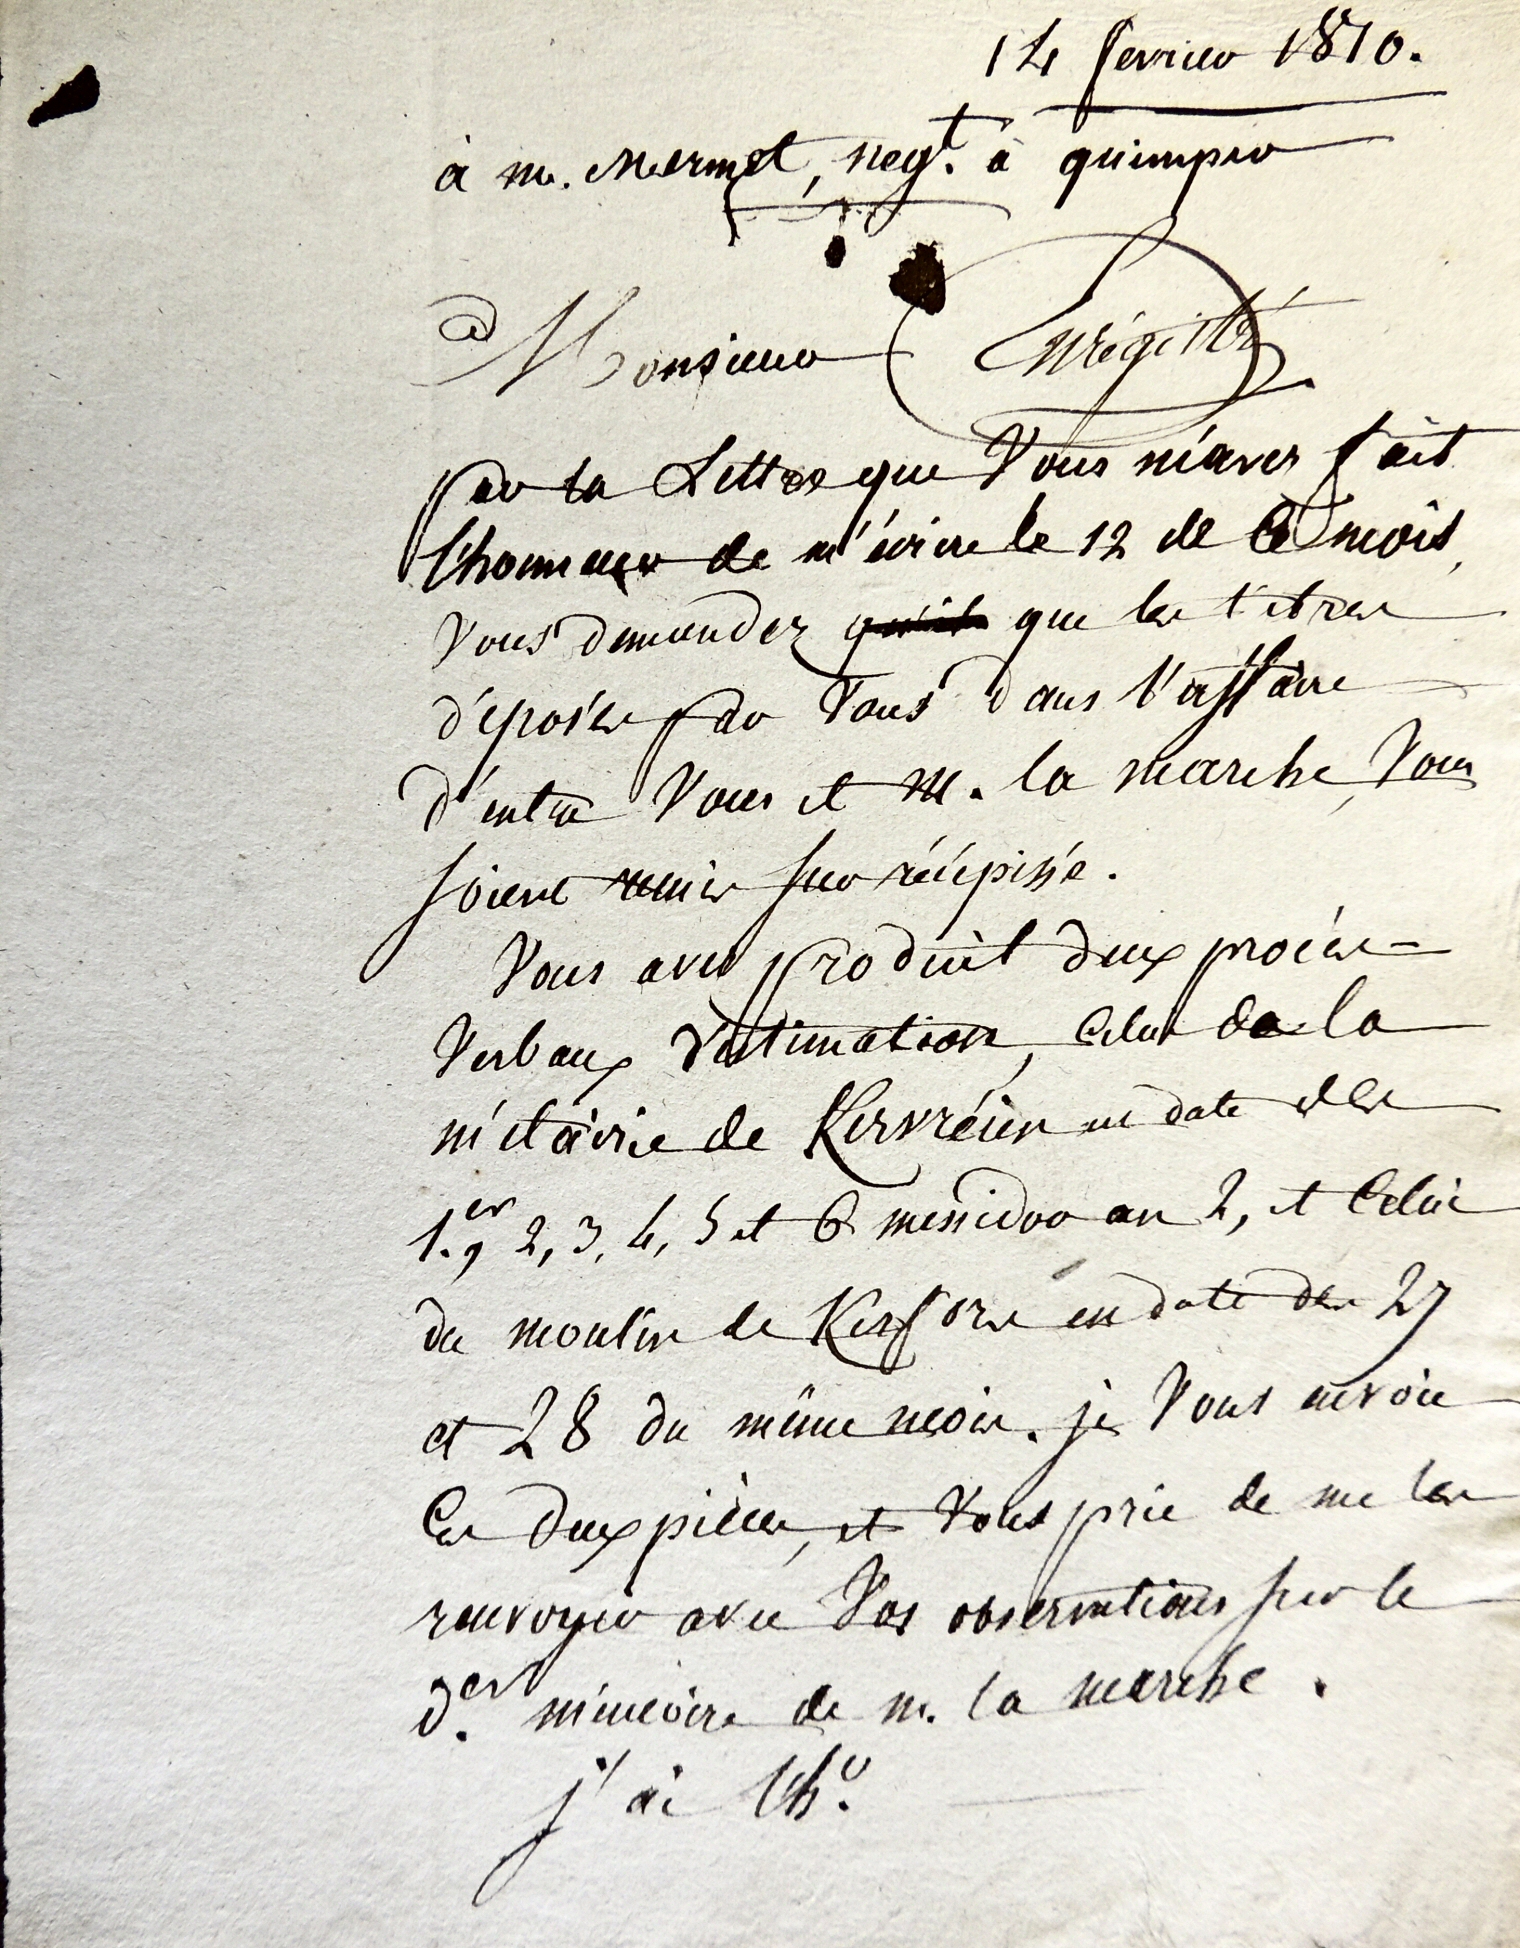 14 fevrier 1810.
à m. Mermet, neg.t à quimper
Monsieur Enrégistré
par la Lettre que Vous m'avez fait
l'honneur de m'écrire le 12 de ce mois,
Vous demandez que les titres
déposés par Vous dans l'affaire
d'entre Vous et M. la marche, Vous
soient remis sur récépissé.
Vous avez produit deux procès-
Verbaux d'estimation, Celui de la
métairie de en date des
1.er, 2, 3, 4, 5 et 6 messidor an 2, et Celui
du moulin de Kerfors en date des 27
et 28 du même mois. je Vous envoie
Ces deux pièces, et Vous prie de me les
renvoyer avec Vos observations sur le
d.er mémoire de m. la marche.
j'ai l'h.r